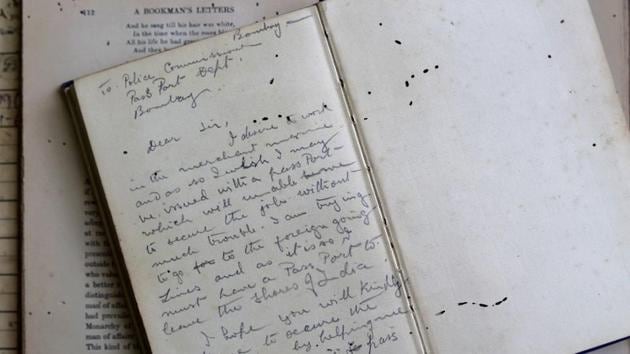 112 A BOOKMAN'S LETTERS
And he sang till his hair was white,
In the time when the roses
All his life he had
And they
To. Police Commissioner Bombay
Pass Port Dept.
Bombay.
Dear Sir,
I desire to work
in the merchant marine
and as so I wish I may
be issued with a Pass Port
which will enable me
to secure the job without
much trouble. I am trying
to go to the foreign going
Lines and as it is so I
must have a Pass Port to
leave the Shores of India.
I hope you will kindly
me to secure the
by helping me
pass
very
adop
with t
present
outside
who valu
a better
distinguis
man of affa
had prevai
Monarchy of
man of affairs
This kind of